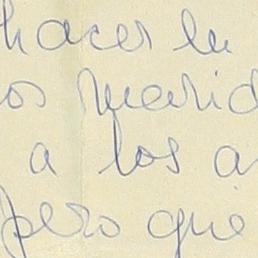 hacer lu
os querid
a los a
pero que